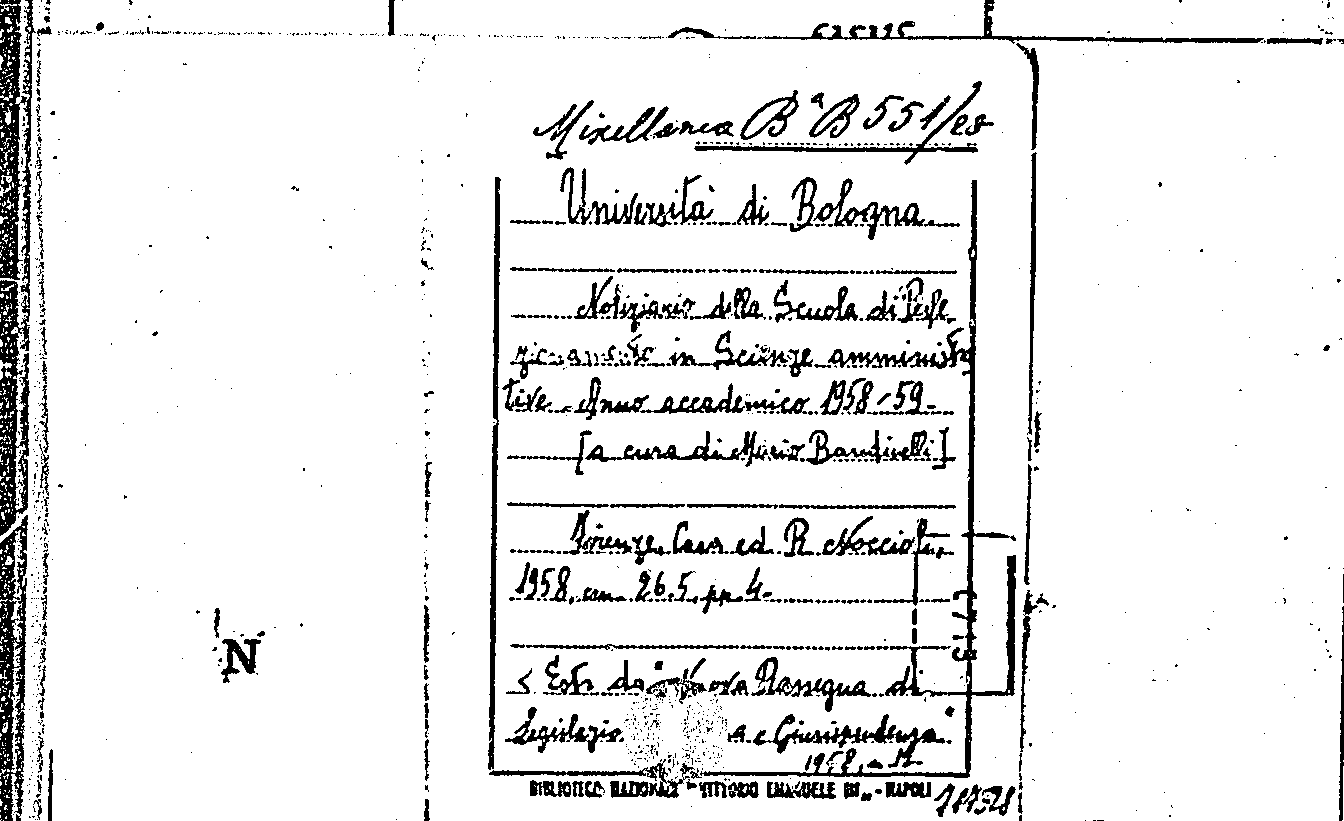 Miscellanea Bª B 551/20
Università di Bologna.
Notiziario della Scuola di Perfe
zionamento in Scienze amministra
tive. Anno accademico 1958-59.
[a cura di Mario Bandinelli]
Firenze, Casa ed. R. Noccioli,
1958, cm. 26.5, pp. 4.
< Estr. da "Nuova Rassegna di
Legislazio a e Giurisprudenza"
1958, n.
BIBLIOTECA NAZIONALE "VITTORIO EMANUELE III" - NAPOLI
N